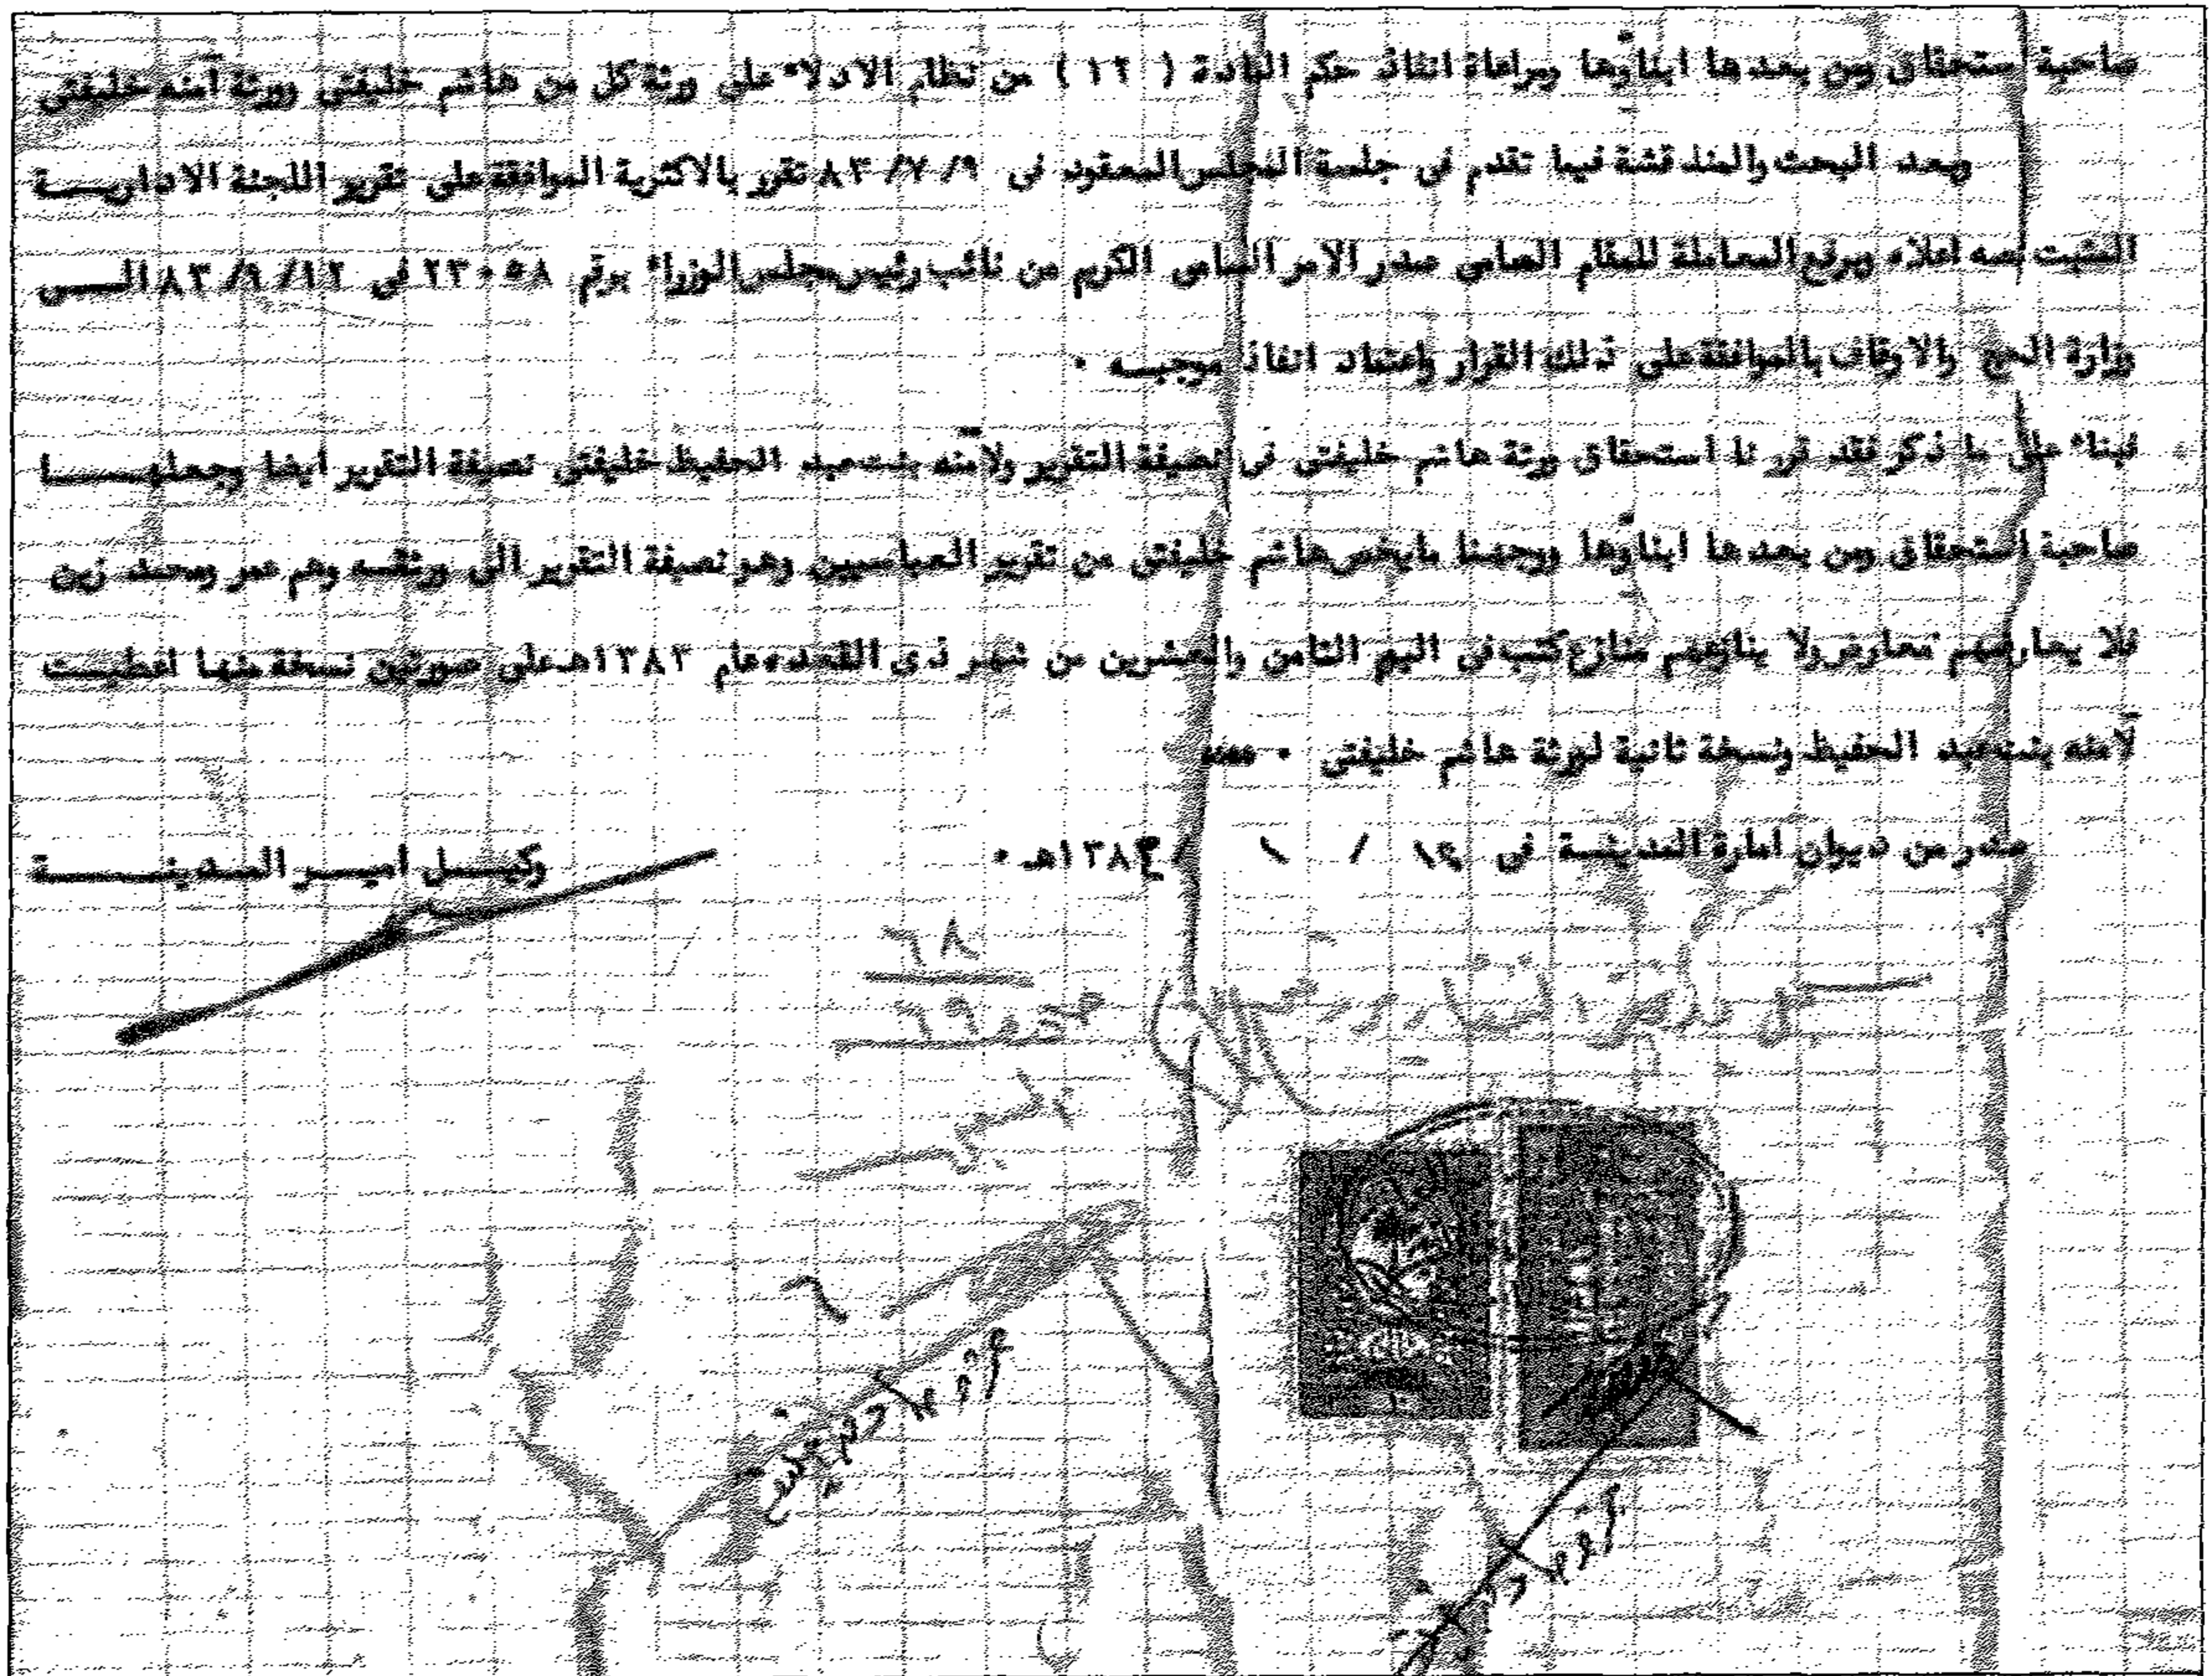 صاحبة استحقاق ومن بعدها ابناؤها ومراعاة انفاذ حكم المادة ( ١٢ ) من نظام الادلاء على ورثة كل من هاشم خليفتى وورثة آمنه خليفتى
وبعد البحث والمناقشة فيما تقدم فى جلسة المجلس المعقود فى ٩/ ٧/ ٨٣ تقرر بالاكثرية الموافقة على تقرير اللجنة الاداريـــة
المثبت نصه اعلاه وبرفع المعاملة للمقام السامى صدر الامر السامى الكريم من نائب رئيس مجلس الوزراء برقم ٢٣٠٥٨ فى ١٢/ ٩/ ٨٣ الـــى
وزارة الحج والاوقاف بالموافقة على ذلك القرار واعتماد انفاذ موجبـــه ٠
فبناء على ما ذكر فقد قررنا استحقاق ورثة هاشم خليفتى فى نصيفة التقرير ولآمنه بنت عبد الحفيظ خليفتى نصيفة التقرير ايضا وجعلهـــــا
صاحبة استحقاق ومن بعدها ابناؤها ووجهنا مايخص هاشم خليفتى من تقرير العباسيين وهو نصيفة التقرير الى ورثته وهم عمر ومحمد زين
فلا يعارضهم معارض ولا ينازعهم منازع كتب فى اليوم الثامن والعشرين من شهر ذى القعده عام ١٣٨٣هـ على صورتين نسخة منها اعطيـــت
لآمنه بنت عبد الحفيظ ونسخة ثانية لورثة هاشم خليفتى ٠
صدر من ديوان امارة المدينـــة فى ١٤ / ١ / ١٣٨٤هـ ٠ وكيـــل اميـــر المـــدينـــــة
٦٨